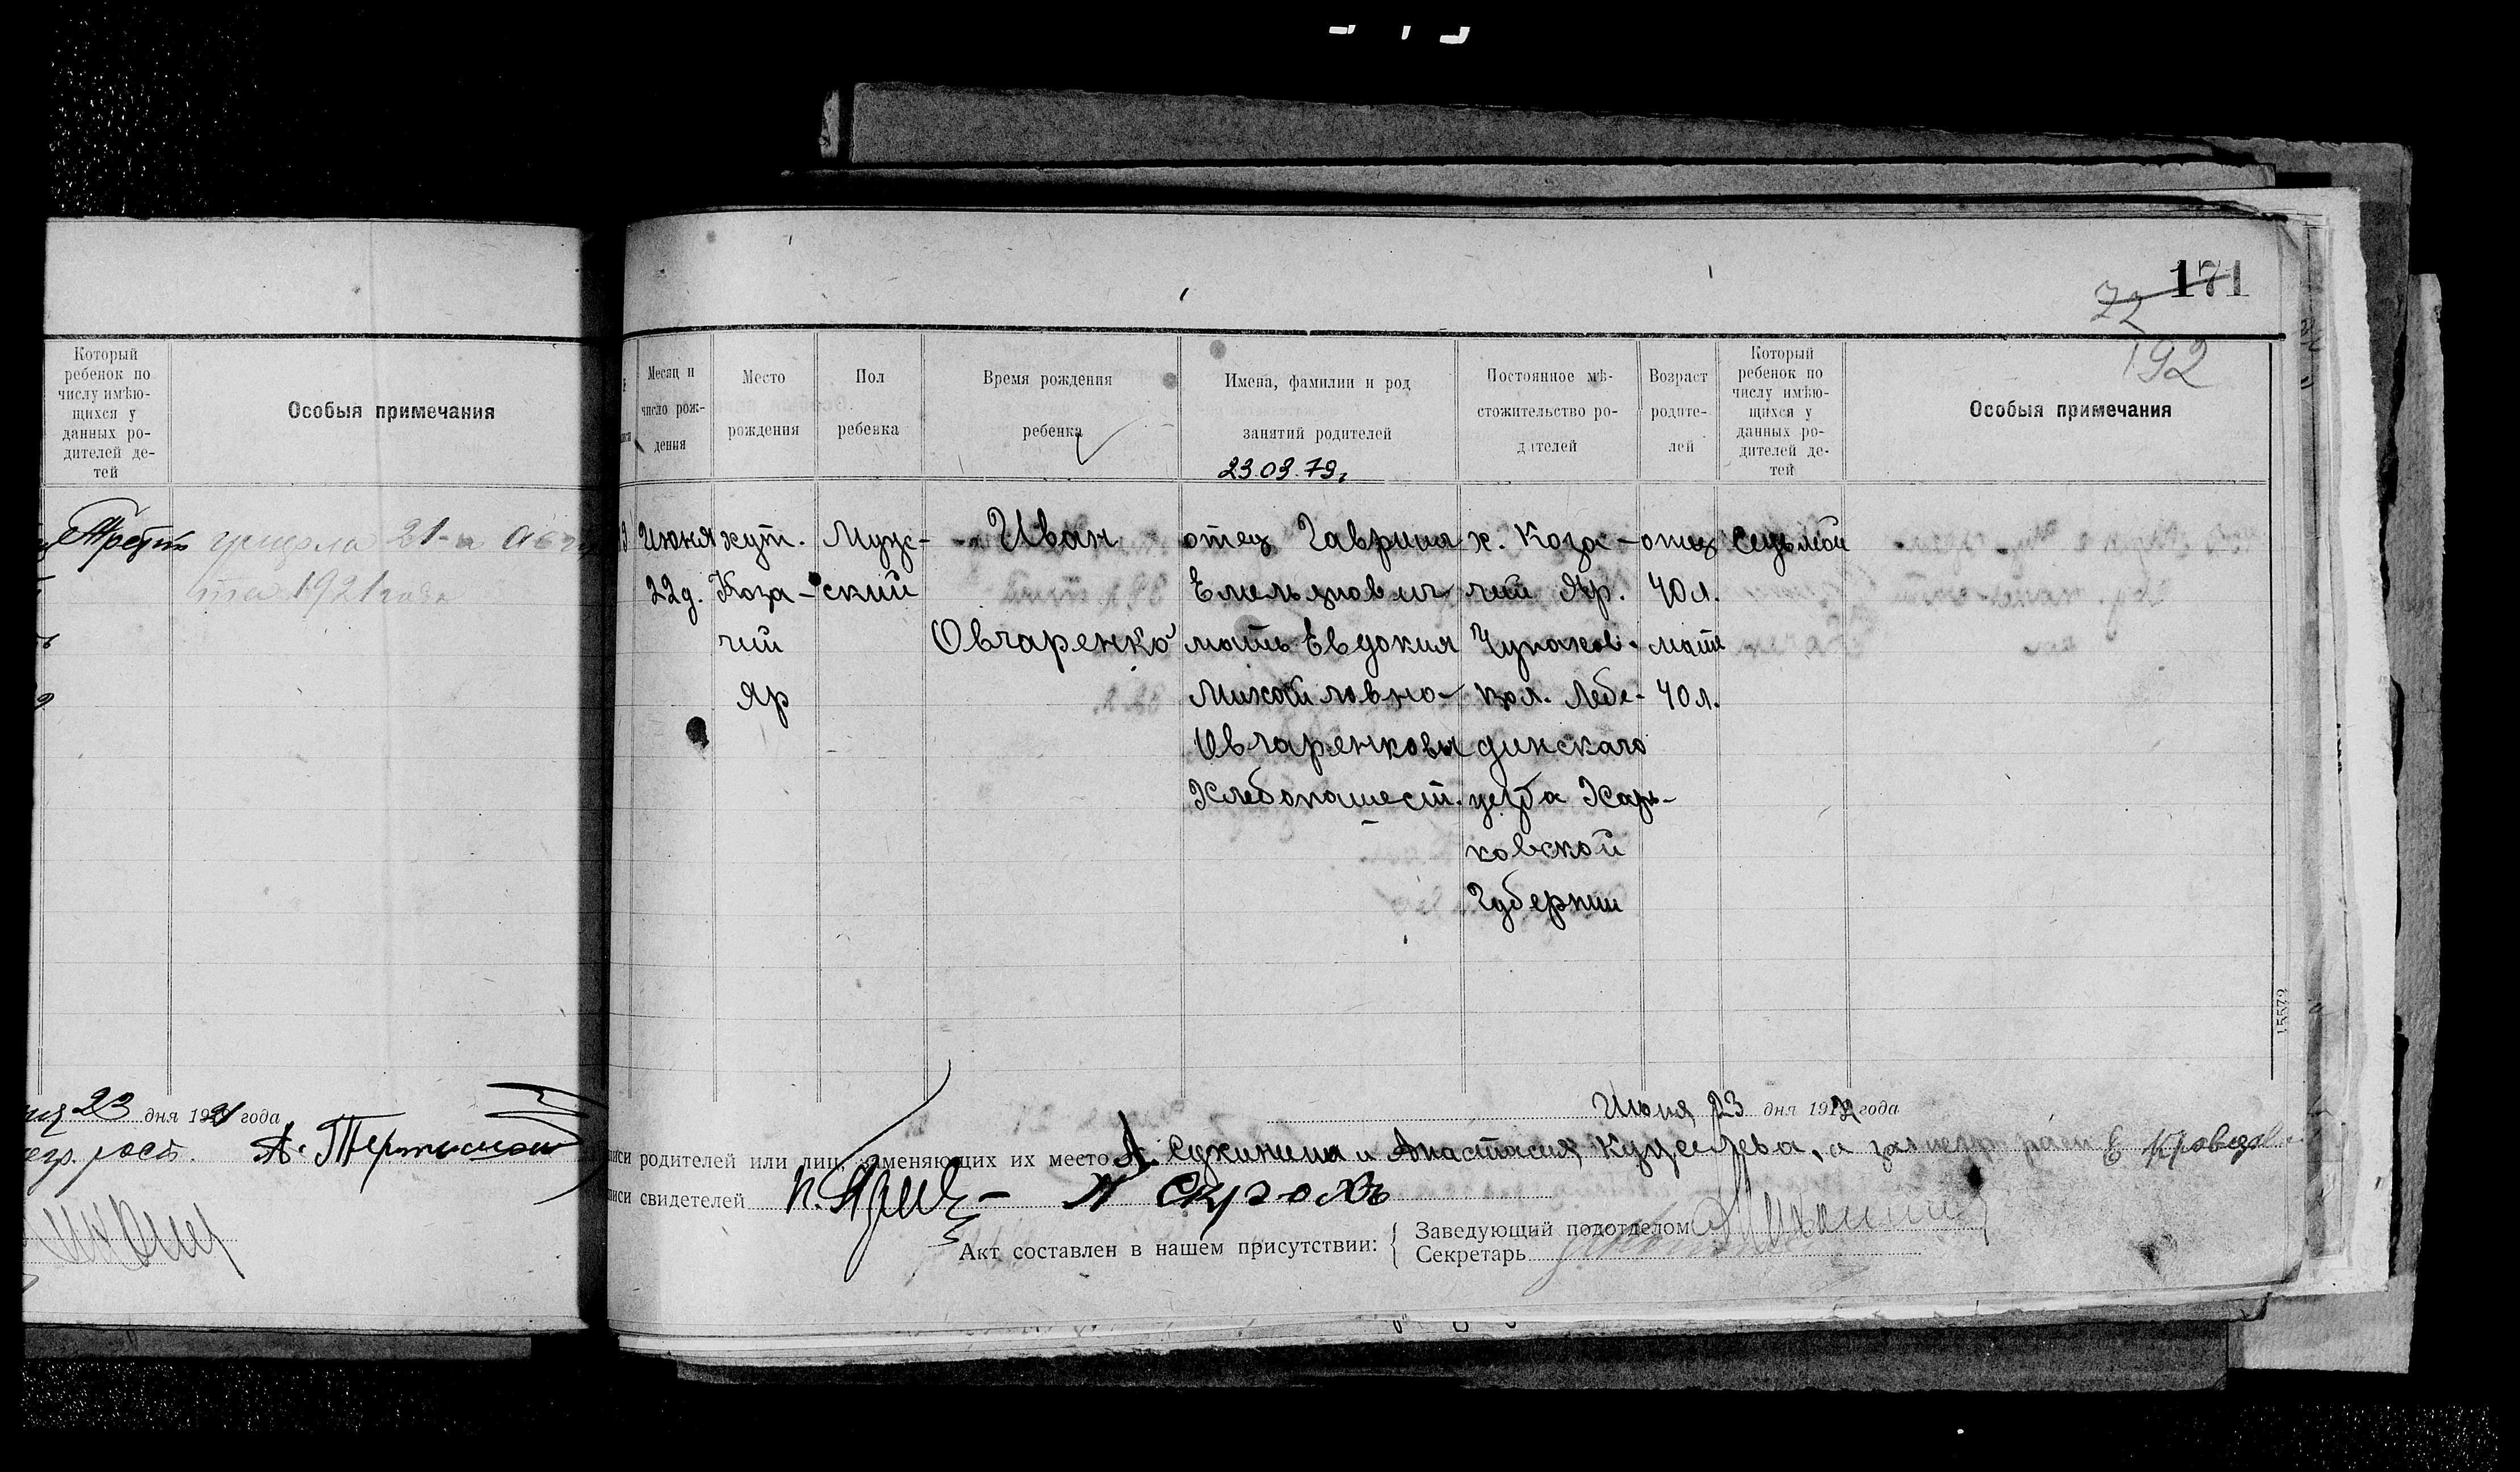 Который
ребенок по
числу имѣю-
щихся у
данных ро-
дителей де-
тей
Особыя примечания
Третий
умерла 21-го Авгу
ста 1921 года
23 дня 1921 года
171
72
192
Месяц и
число рож-
дения
Место
рождения
Пол
ребенка
Время рождения
ребенка
Имена, фамилии и род
занятий родителей
23.03.79г
Постоянное мѣ-
стожительство ро-
дителей
Возраст
родите-
лей
Который
ребенок по
числу имѣю-
щихся у
данных ро-
дителей де-
тей
Особыя примечания
Июня
22д.
хут.
Коза-
чий
Яр
Муж-
ский
Иван
Овчаренко
отец Гаврила
Емельянович
мать Евдокия
Михайловна
Овчаренковы
Хлебопашест.
х. Коза-
чий Яр.
вол. Лебе-
динскаго
уезда Харь-
ковской
Губернии
отец
40 л.
мать
40 л.
Седьмой
15579
Июня 23 дня 192 года
писи родителей или лиц, заменяющих их место А. Сухинина и Анастасия
писи свидетелей
Акт составлен в нашем присутствии:
Заведующий подотделом
Секретарь